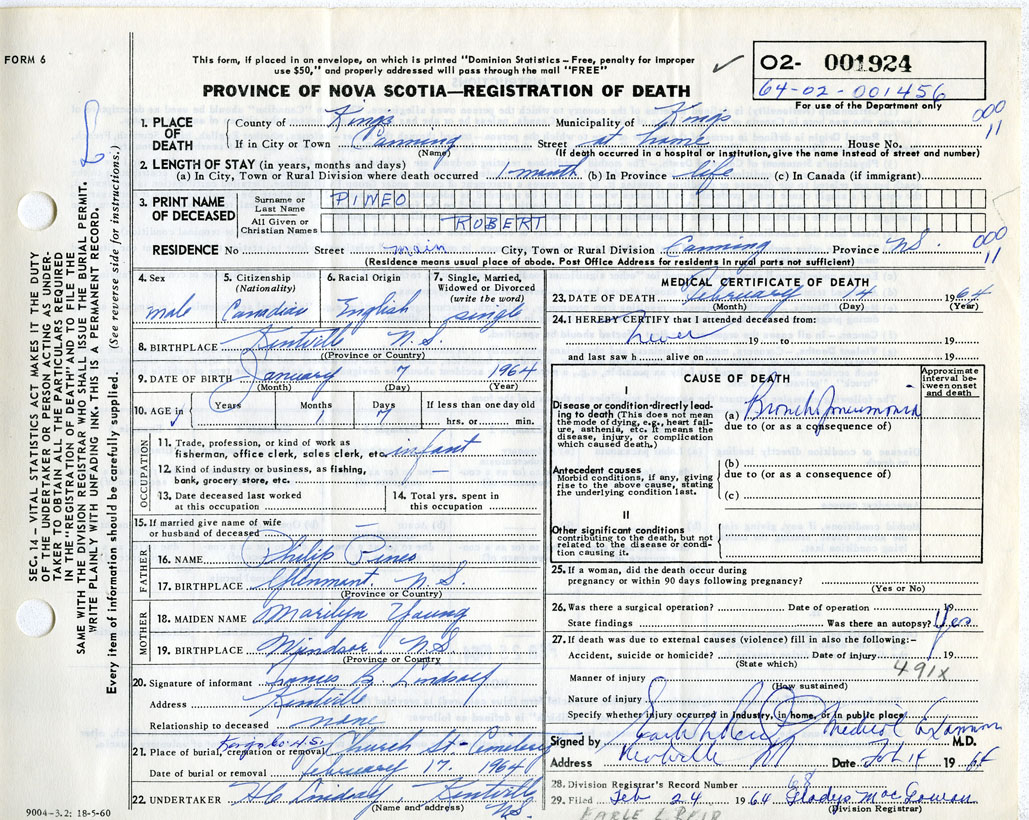 FORM 6
This form, if placed in an envelope, on which is printed "Dominion Statistics – Free, penalty for improper
use $50," and properly addressed will pass through the mail "FREE"
O2- 001924
64-02-001456
For use of the Department only
PROVINCE OF NOVA SCOTIA—REGISTRATION OF DEATH
000
11
1. PLACE OF DEATH
County of Kings Municipality of Kings
If in City or Town Canning Street at home House No.
(Name) (If death occurred in a hospital or institution, give the name instead of street and number)
2. LENGTH OF STAY (in years, months and days)
(a) In City, Town or Rural Division where death occurred 1 month (b) In Province life (c) In Canada (if immigrant)
3. PRINT NAME OF DECEASED
Surname or Last Name PINEO
All Given or Christian Names ROBERT
RESIDENCE No Street main City, Town or Rural Division Canning Province N.S.
000
11
(Residence means usual place of abode. Post Office Address for residents in rural parts not sufficient)
4. Sex
male
5. Citizenship
(Nationality)
Canadian
6. Racial Origin
English
7. Single, Married,
Widowed or Divorced
(write the word)
single
8. BIRTHPLACE Kentville N.S.
(Province or Country)
9. DATE OF BIRTH January 7 1964
(Month) (Day) (Year)
10. AGE in
Years
Months 1
Days 7
If less than one day old
hrs. or min.
OCCUPATION
11. Trade, profession, or kind of work as
fisherman, office clerk, sales clerk, etc. infant
12. Kind of industry or business, as fishing,
bank, grocery store, etc. —
13. Date deceased last worked
at this occupation
14. Total yrs. spent in
this occupation
15. If married give name of wife
or husband of deceased —
FATHER
16. NAME Philip Pineo
17. BIRTHPLACE Glenmont, N.S.
(Province or Country)
MOTHER
18. MAIDEN NAME Marilyn Young
19. BIRTHPLACE Windsor N.S
(Province or Country)
20. Signature of informant Frances B. Lindsay
Address Kentville
Relationship to deceased none
21. Place of burial, cremation or removal Kings Co. N.S. Church St - Cemetery
Date of burial or removal February 17. 1964
22. UNDERTAKER H C Lindsay, Kentville
(Name and address) N.S.
9004-3.2: 18-5-60
MEDICAL CERTIFICATE OF DEATH
23. DATE OF DEATH February 14 1964
(Month) (Day) (Year)
24. I HEREBY CERTIFY that I attended deceased from:
never 19 to 19
and last saw h alive on 19
CAUSE OF DEATH
Approximate
interval be-
tween onset
and death
I
Disease or condition directly lead-
ing to death (This does not mean
the mode of dying, e.g., heart fail-
ure, asthenia, etc. It means the
disease, injury, or complication
which caused death.)
(a) Bronchopneumonia
due to (or as a consequence of)
Antecedent causes
Morbid conditions, if any, giving
rise to the above cause, stating
the underlying condition last.
(b)
due to (or as a consequence of)
(c)
II
Other significant conditions
contributing to the death, but not
related to the disease or condi-
tion causing it.
25. If a woman, did the death occur during
pregnancy or within 90 days following pregnancy?
(Yes or No)
26. Was there a surgical operation? Date of operation 19
State findings Was there an autopsy? Yes
27. If death was due to external causes (violence) fill in also the following:–
Accident, suicide or homicide? Date of injury 19
(State which) 491X
Manner of injury
(How sustained)
Nature of injury
Specify whether injury occurred in industry, in home, or in public place
Signed by Medical Examiner M.D.
Address Date Feb 14 1964
28. Division Registrar's Record Number 68
29. Filed Feb 24 1964 Gladys MacGowan
(Division Registrar)
EARLE L REID
SEC. 14 – VITAL STATISTICS ACT MAKES IT THE DUTY
OF THE UNDERTAKER OR PERSON ACTING AS UNDER-
TAKER TO OBTAIN ALL THE PARTICULARS REQUIRED
IN THE "REGISTRATION OF DEATH" AND FILE THE
SAME WITH THE DIVISION REGISTRAR WHO SHALL ISSUE THE BURIAL PERMIT.
WRITE PLAINLY WITH UNFADING INK. THIS IS A PERMANENT RECORD.
Every item of information should be carefully supplied. (See reverse side for instructions.)